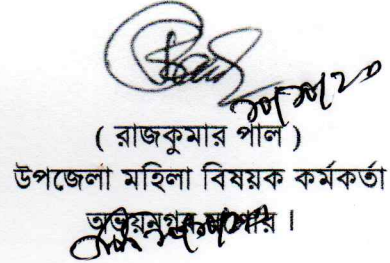 ( রাজকুমার পাল )
উপজেলা মহিলা বিষয়ক কর্মকর্তা
অভয়নগর, যশোর ।